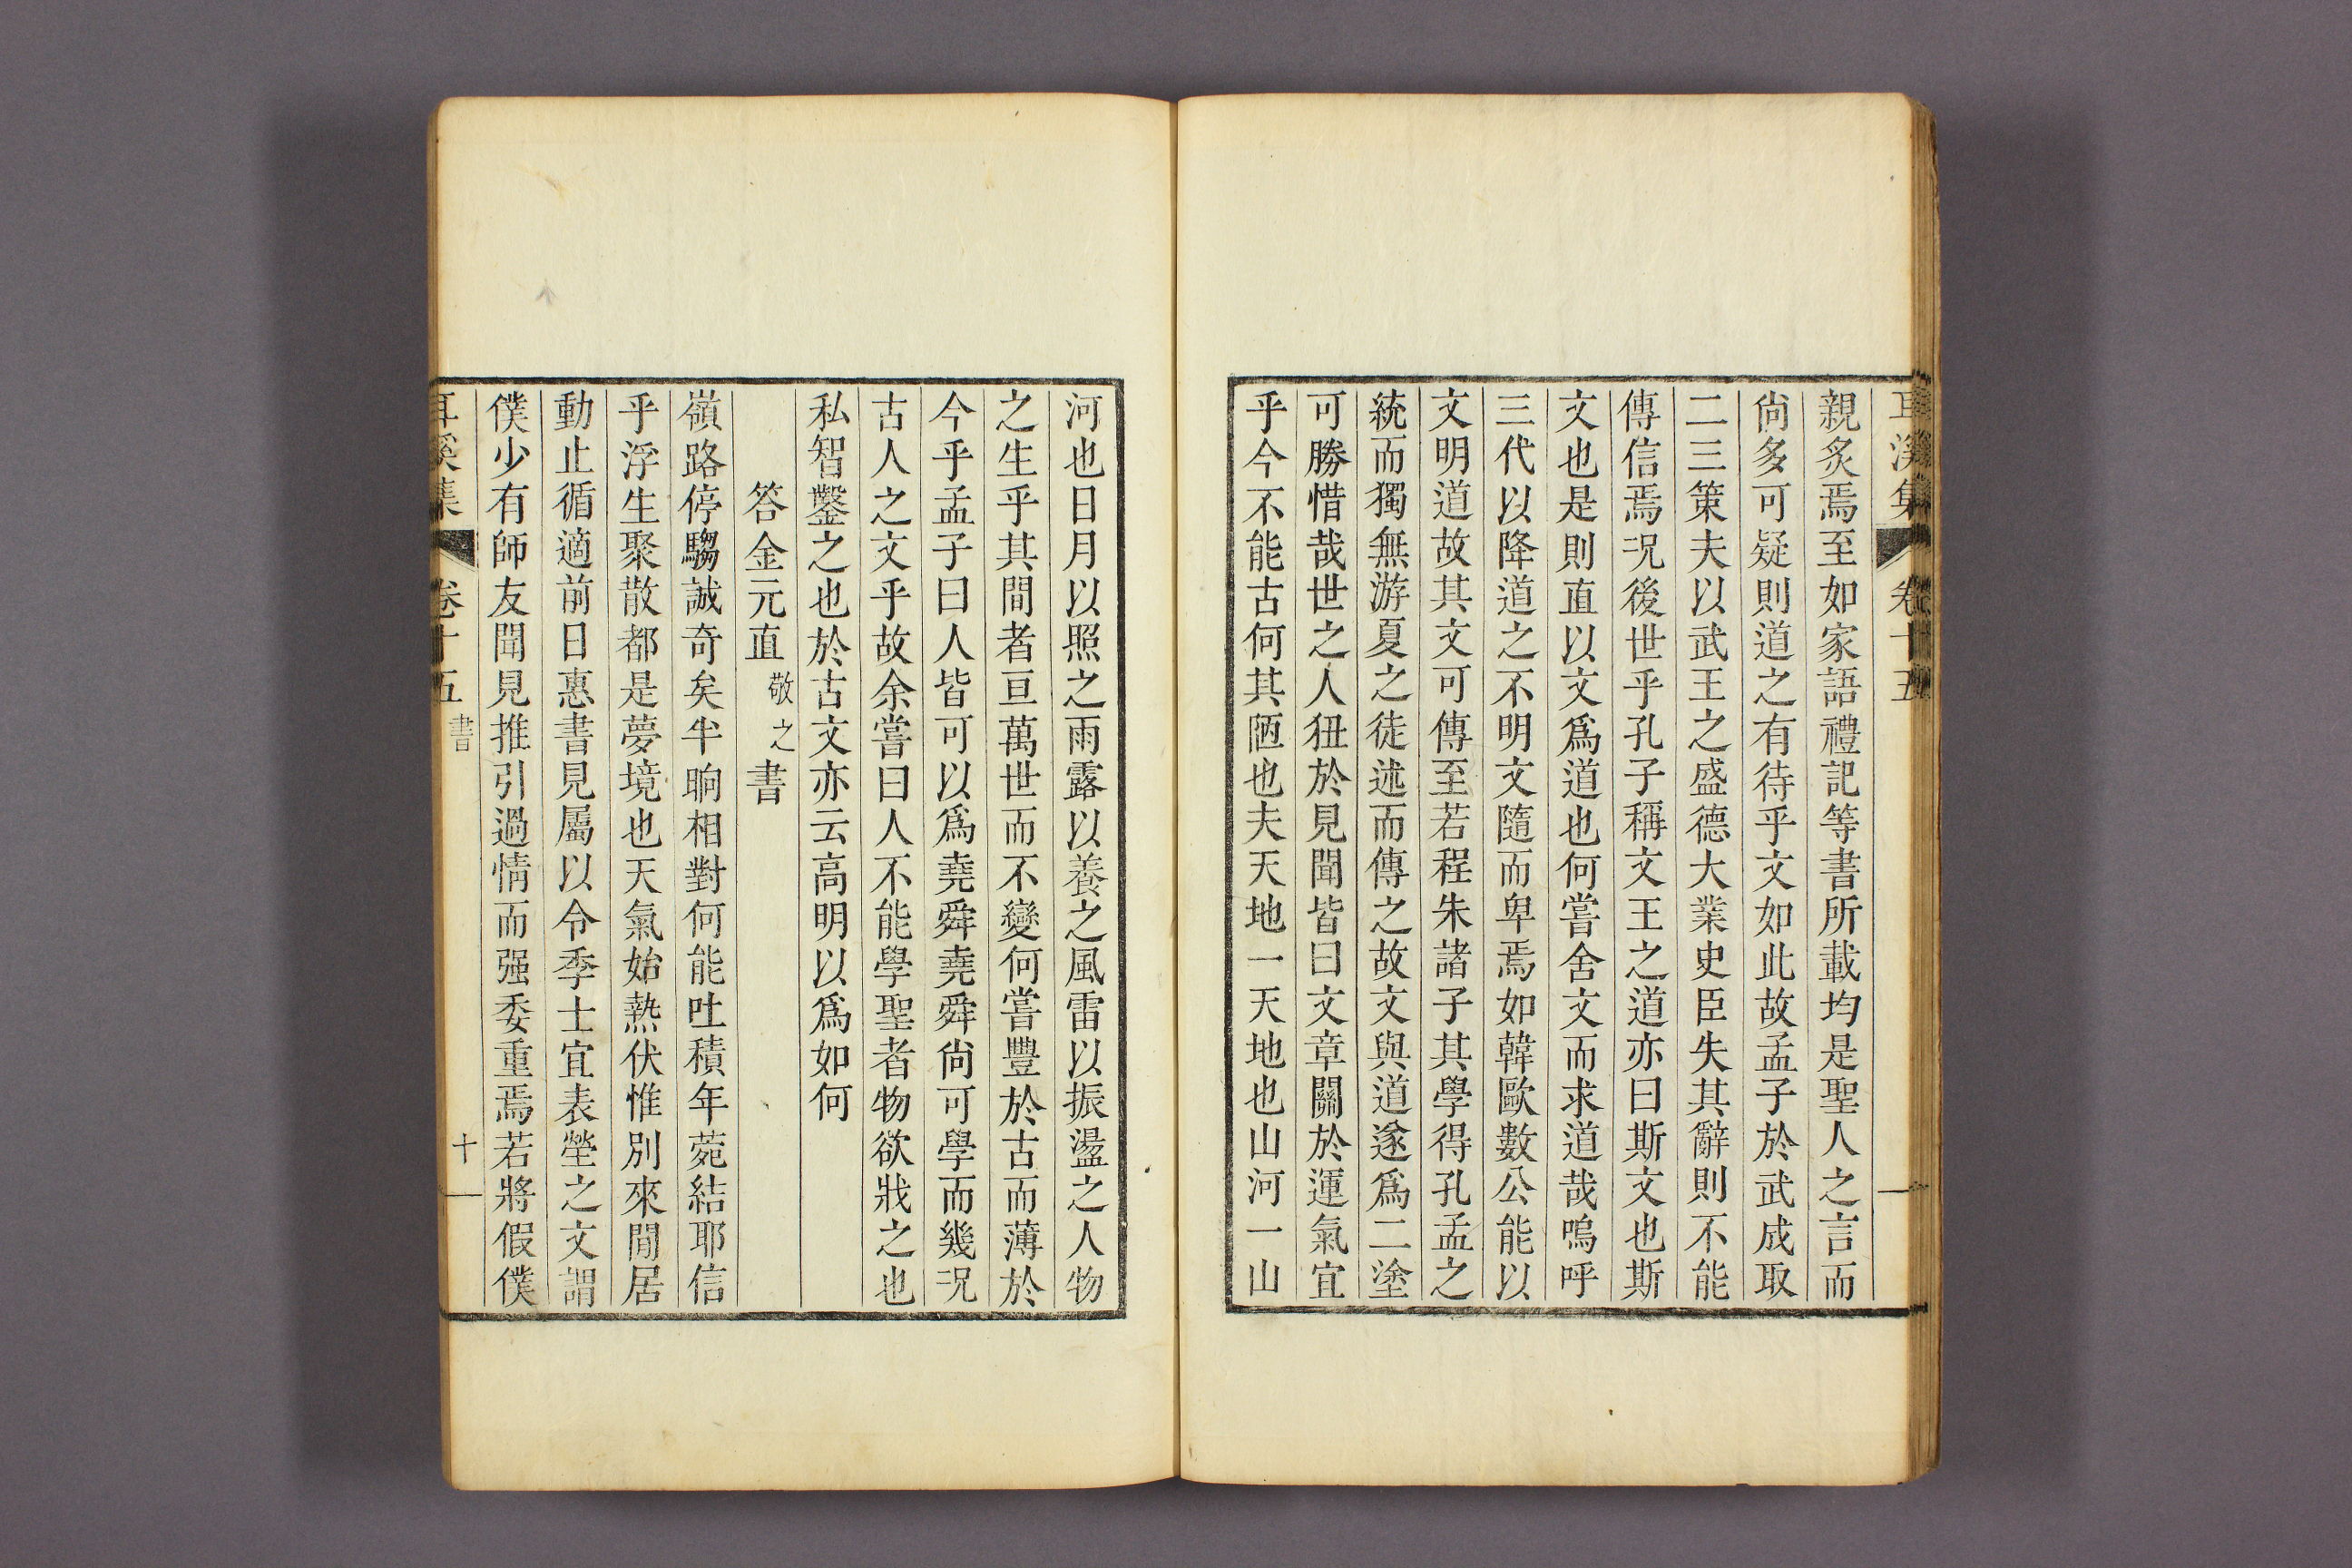 耳溪集 卷十五
親炙焉至如家語禮記等書所載均是聖人之言而
尙多可疑則道之有待乎文如此故孟子於武成取
二三策夫以武王之盛德大業史臣失其辭則不能
傳信焉况後世乎孔子稱文王之道亦曰斯文也斯
文也是則直以文爲道也何嘗舍文而求道哉嗚呼
三代以降道之不明文隨而卑焉如韓歐數公能以
文明道故其文可傳至若程朱諸子其學得孔孟之
統而獨無游夏之徒述而傳之故文與道遂爲二塗
可勝惜哉世之人狃於見聞皆曰文章關於運氣宜
乎今不能古何其陋也夫天地一天地也山河一山
河也日月以照之雨露以養之風雷以振盪之人物
之生乎其間者亘萬世而不變何嘗豐於古而薄於
今乎孟子曰人皆可以爲堯舜堯舜尙可學而幾况
古人之文乎故余嘗曰人不能學聖者物欲戕之也
私智鑿之也於古文亦云高明以爲如何
答金元直敬之書
嶺路停騶誠奇矣半晌相對何能吐積年菀結耶信
乎浮生聚散都是夢境也天氣始熱伏惟別來閒居
動止循適前日惠書見屬以令季士宜表塋之文謂
僕少有師友聞見推引過情而强委重焉若將假僕
耳溪集 卷十五 書 十